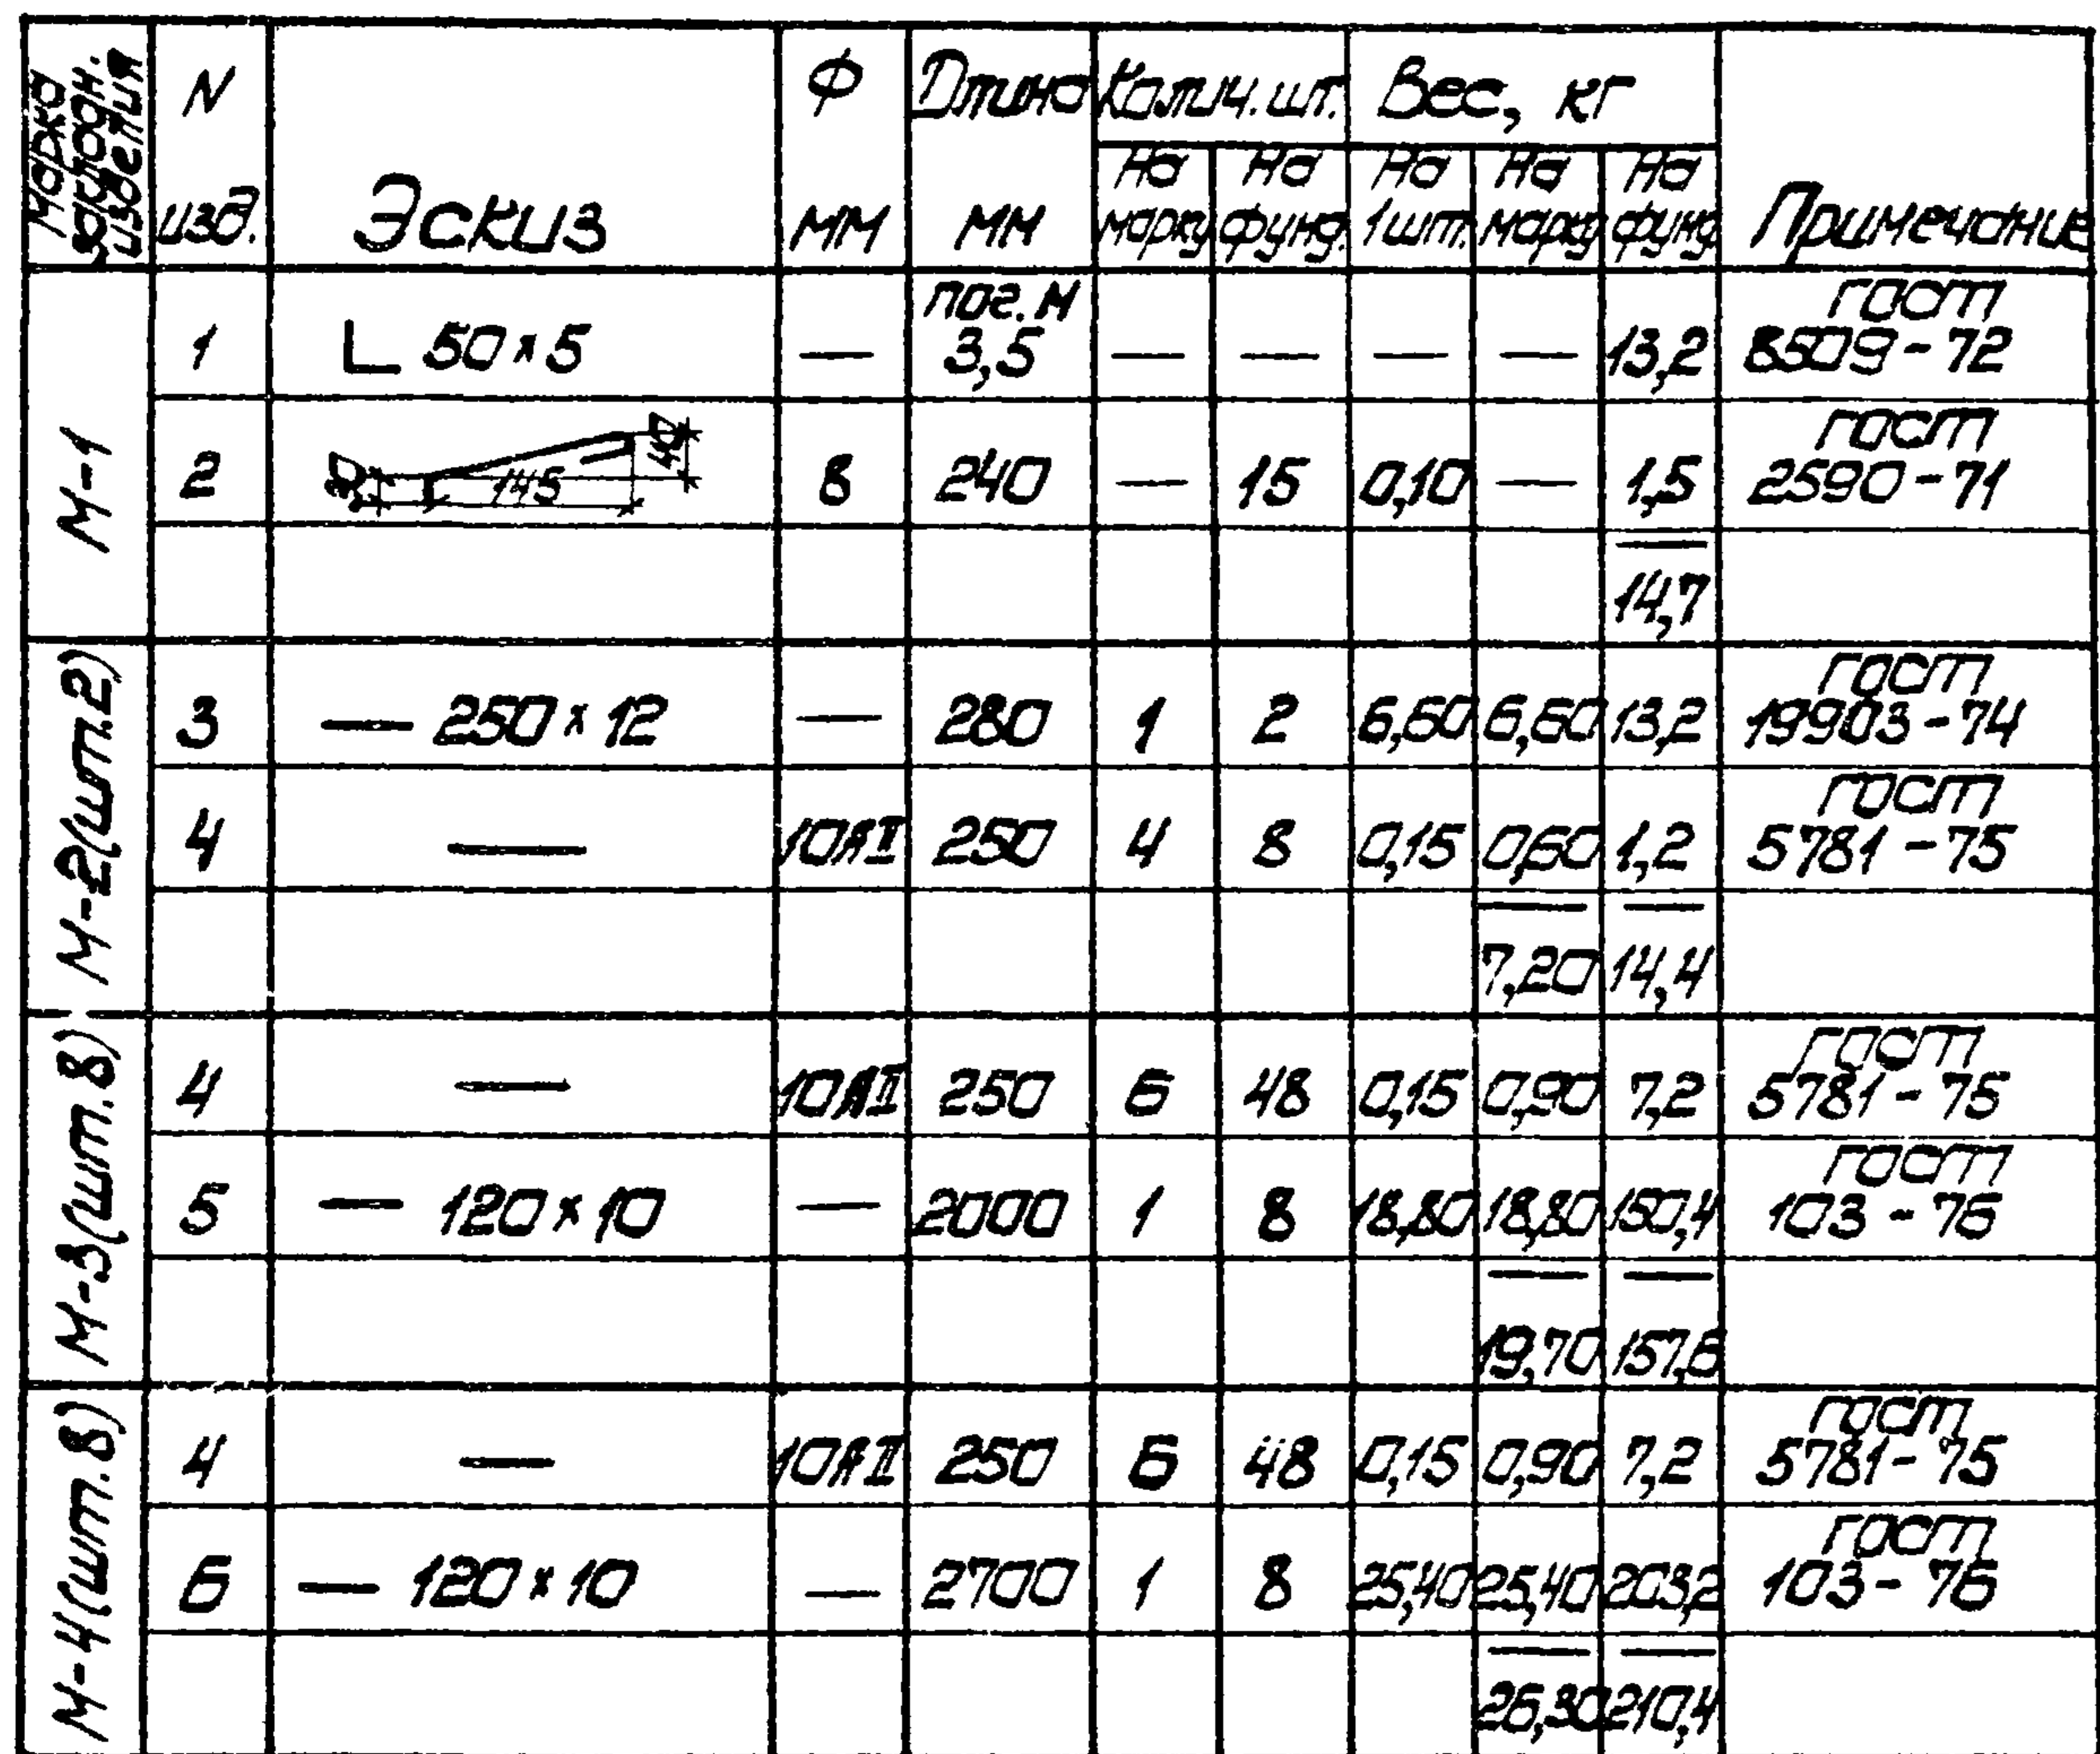 Марка закладн. изделия
N изд.
Эскиз
Ф мм
Длина мм
Колич. шт.
Вес, кг
Примечание
На марку
На фунд.
На 1 шт.
На марку
На фунд.
М-1
1 L 50×5 — пог. м 3,5 — — — — 13,2 ГОСТ 8509-72
2 145 40 8 240 — 15 0,10 — 1,5 ГОСТ 2590-71
14,7
М-2 (шт. 2)
3 — 250×12 — 280 1 2 6,60 6,60 13,2 ГОСТ 19903-74
4 — 10АII 250 4 8 0,15 0,60 1,2 ГОСТ 5781-75
7,20 14,4
М-3 (шт. 8)
4 — 10АII 250 6 48 0,15 0,90 7,2 ГОСТ 5781-75
5 — 120×10 — 2000 1 8 18,80 18,80 150,4 ГОСТ 103-76
19,70 157,6
М-4 (шт. 8)
4 — 10АII 250 6 48 0,15 0,90 7,2 ГОСТ 5781-75
6 — 120×10 — 2700 1 8 25,40 25,40 203,2 ГОСТ 103-76
26,30 210,4